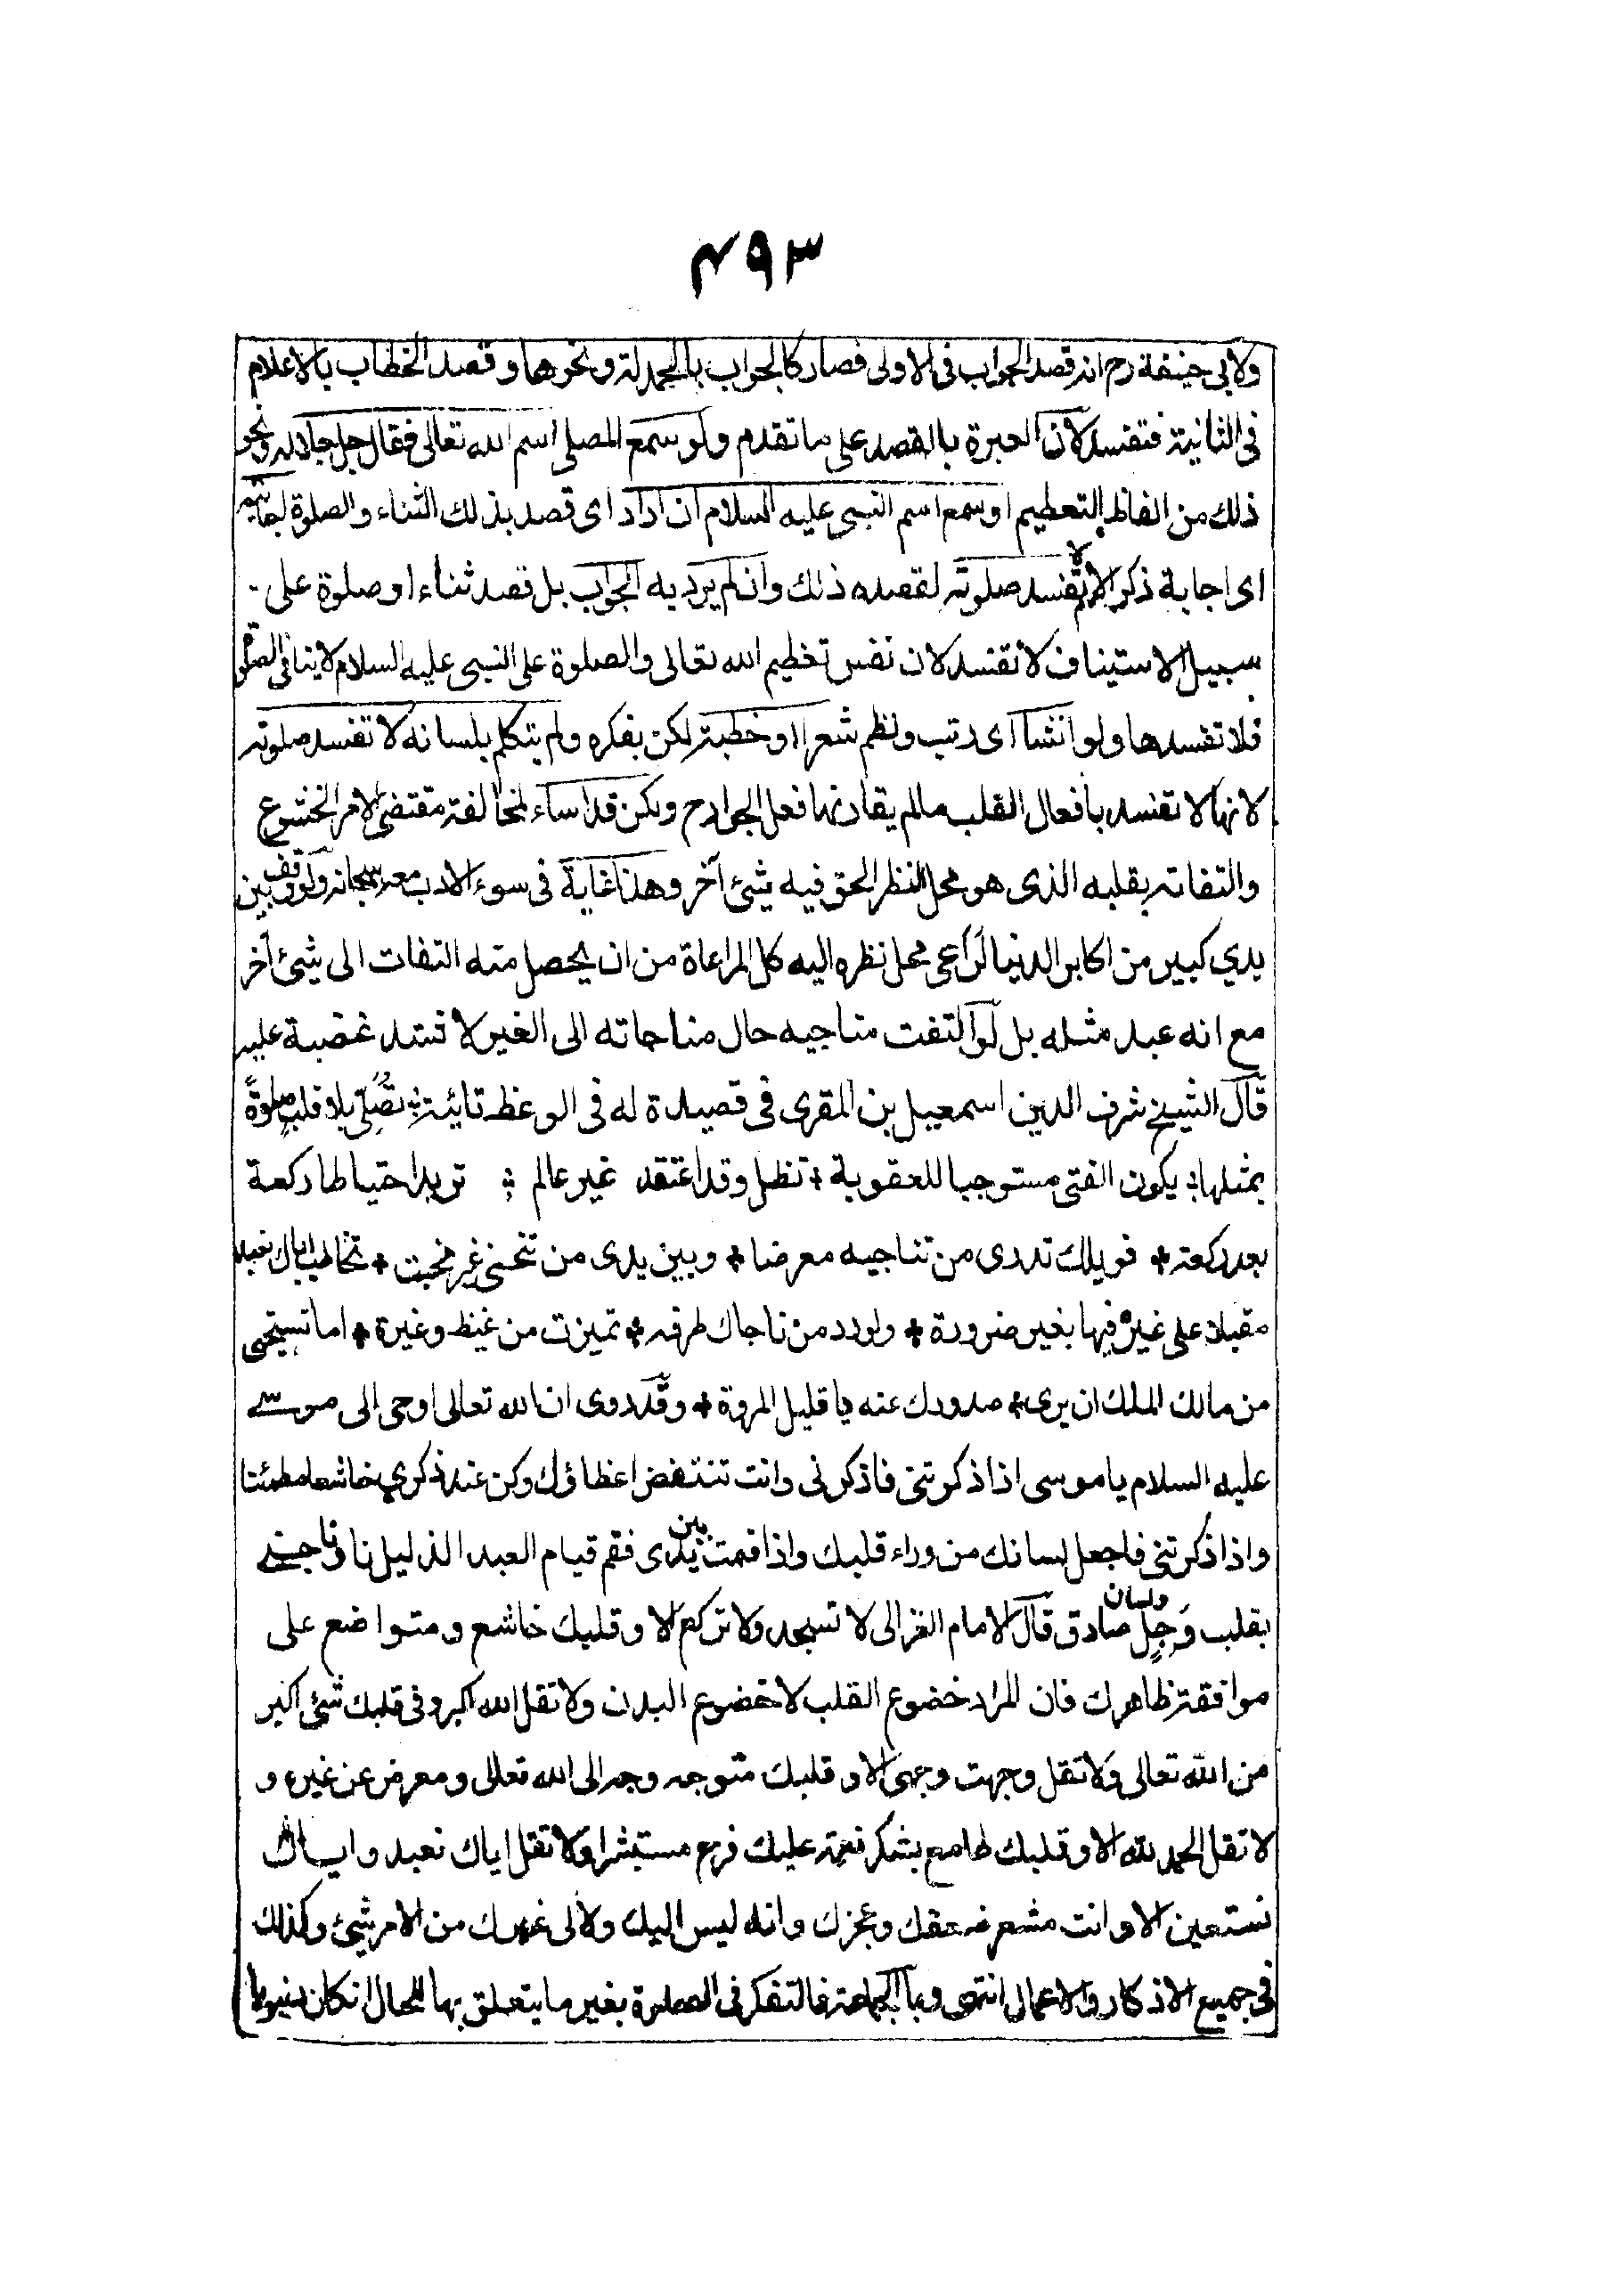 ۴۹۳
ولابي حنيفة رح انه قصد الجواب في الاولى فصار كالجواب بالحمدلة ونحوها وقصد الخطاب بالاعلام
في الثانية فتفسد لان العبرة بالقصد على ما تقدم ولو سمع المصلى اسم الله تعالى فقال جل جلاله ونحو
ذلك من الفاظ التعظيم او سمع اسم النبي عليه السلام ان اراد اى قصد بذلك الثناء والصلوة
اى اجابة ذكر تفسد صلوته لقصده ذلك وان لم يرد به الجواب بل قصد ثناء او صلوة على
سبيل الاستيناف لا تفسد لان نفس تعظيم الله تعالى والصلوة على النبي عليه السلام لا ينافي الصلوة
فلا تفسدها ولو انشأ اى رتب ونظم شعرا او خطبة لكن بفكره ولم يتكلم بلسانه لا تفسد صلوته
لانها لا تفسد بافعال القلب مالم يقارنها فعل الجوارح ولكن قد اساء لمخالفة مقتضى الامر الخشوع
والتفاته بقلبه الذى هو محل النظر الحق فيه شئ آخر وهذا غاية فى سوء الادب معه سبحانه ولو وقف بين
يدي كبير من اكابر الدنيا لَرَاعى محل نظره اليه كل المراعاة من ان يحصل منه التفات الى شئ آخر
مع انه عبد مثله بل لو التفت مناجيه حال مناجاته الى الغير لاشتد غضبة عليه
قال الشيخ شرف الدين اسمعيل بن المقرى فى قصيدة له فى الوعظ تائية ؛ تُصَلّي بلا قلبٍ صلوةً
بمثلها ؛ يكون الفتى مستوجبا للعقوبة + تظل وقد اعتقد غير عالم ؛ تريد احتياطا ركعة
بعد ركعة + فويلك تدرى من تناجيه معرضا + وبين يدى من تنحنى غير مخبت + تخاطب اياك نعبد
مقبلا على غيره فيها بغير ضرورة + ولو رد من ناجاك طرفه + تميزت من غيظ وغيرة + اما تستحيى
من مالك الملك ان يرى + صدودك عنه يا قليل المروة + وقَد روى ان الله تعالى اوحى الى موسے
عليه السلام يا موسى اذا ذكرتنى فاذكرنى وانت تنتفض اعظاؤك وكن عند ذكري خاشعا مطمئنا
واذا ذكرتنى فاجعل لسانك من وراء قلبك واذا قمت بين يدى فقم قيام العبد الذليل وناجنے
بقلب وَجِلٍ ولسان صادق قال الامام الغزالى لا تسجد ولا تركع الا وقلبك خاشع ومتواضع على
موافقة ظاهرك فان المراد خضوع القلب لا خضوع البدن ولا تقل الله اكبر وفى قلبك شئ اكبر
من الله تعالى ولا تقل وجهت وجهى الا وقلبك متوجه وجه الى الله تعالى ومعرض عن غيره و
لا تقل الحمد لله الا وقلبك طافح بشكر نعمته عليك فرح مستبشرا ولا تقل اياك نعبد واياك
نستعين الا وانت مشعر ضعفك وعجزك وانه ليس اليك ولا لى غيرك من الامر شئ وكذلك
فى جميع الاذكار والاعمال انتهى وبالجملة فالتفكر فى الصلوة بغير ما يتعلق بها للحال ان كان دنيويا